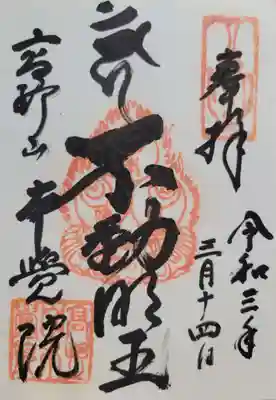 奉拝
令和三年
三月十四日
不動明王
高野山 本覺院